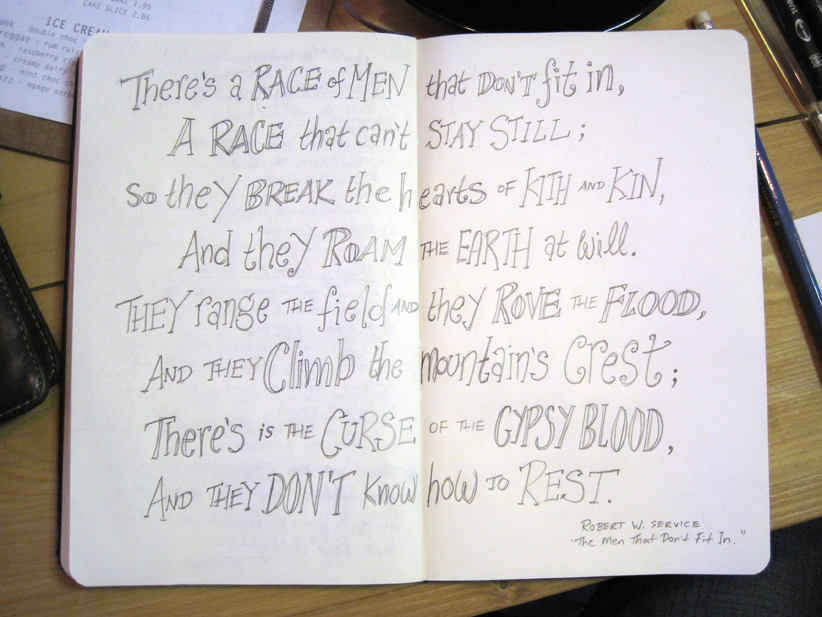 ART 1.95
CAKE SLICE 2.85
ICE CREAM
double choc
reggae - rum rais
raspberry r
creamy dairy
mint choc c
mango sor
There's a RACE of MEN that DON'T fit in,
A RACE that can't STAY STILL;
so they BREAK the hearts OF KITH AND KIN,
And they ROAM THE EARTH at will.
THEY range THE field AND they ROVE THE FLOOD,
AND THEY Climb the mountain's Crest;
There's is THE CURSE OF THE GYPSY BLOOD,
AND THEY DON'T know how TO REST.
ROBERT W. SERVICE
"The Men That Don't Fit In."